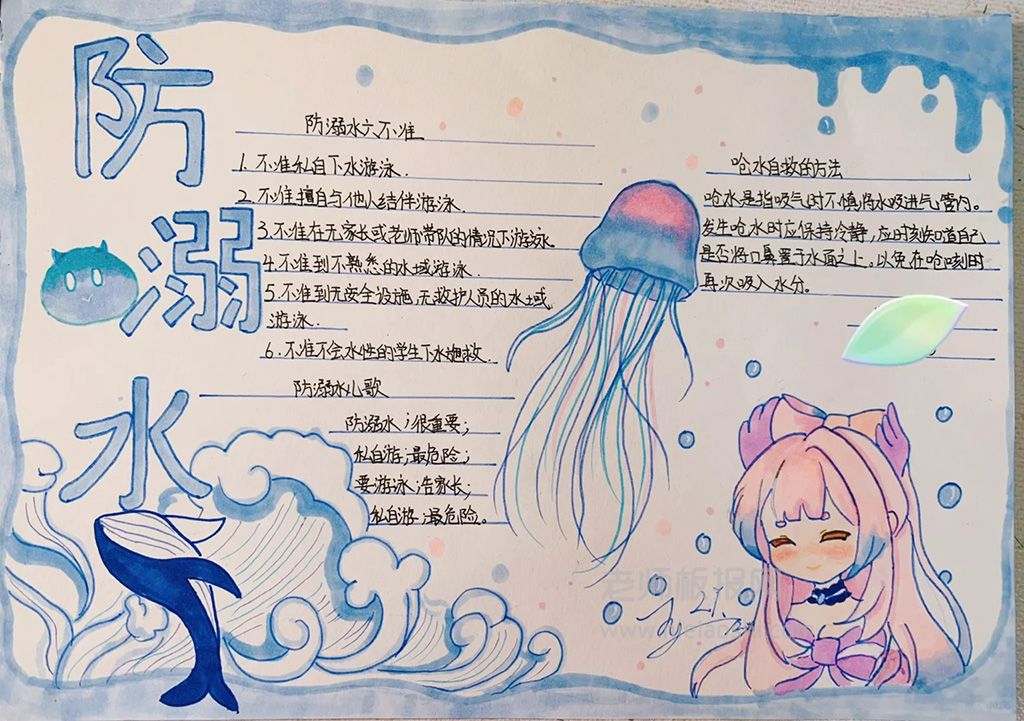 防溺水
防溺水六不准
1.不准私自下水游泳.
2.不准擅自与他人结伴游泳.
3.不准在无家长或老师带队的情况下游泳
4.不准到不熟悉的水域游泳.
5.不准到无安全设施,无救护人员的水域
游泳.
6.不准不会水性的学生下水抱救.
防溺水儿歌
防溺水;很重要;
私自游;最危险;
要游泳;告家长;
私自游;最危险。
呛水自救的方法
呛水是指吸气时不慎将水吸进气管内。
发生呛水时应保持冷静,应时刻知道自己
是否将口鼻置于水面之上。以免在呛咳时
再次吸入水分。
老师板报网